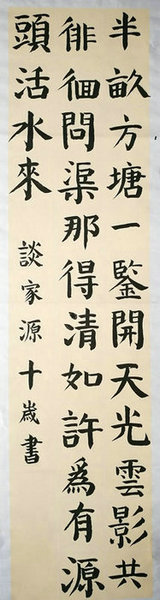 半畝方塘一鑒開天光雲影共
徘徊問渠那得清如許爲有源
頭活水來
談家源十歲書